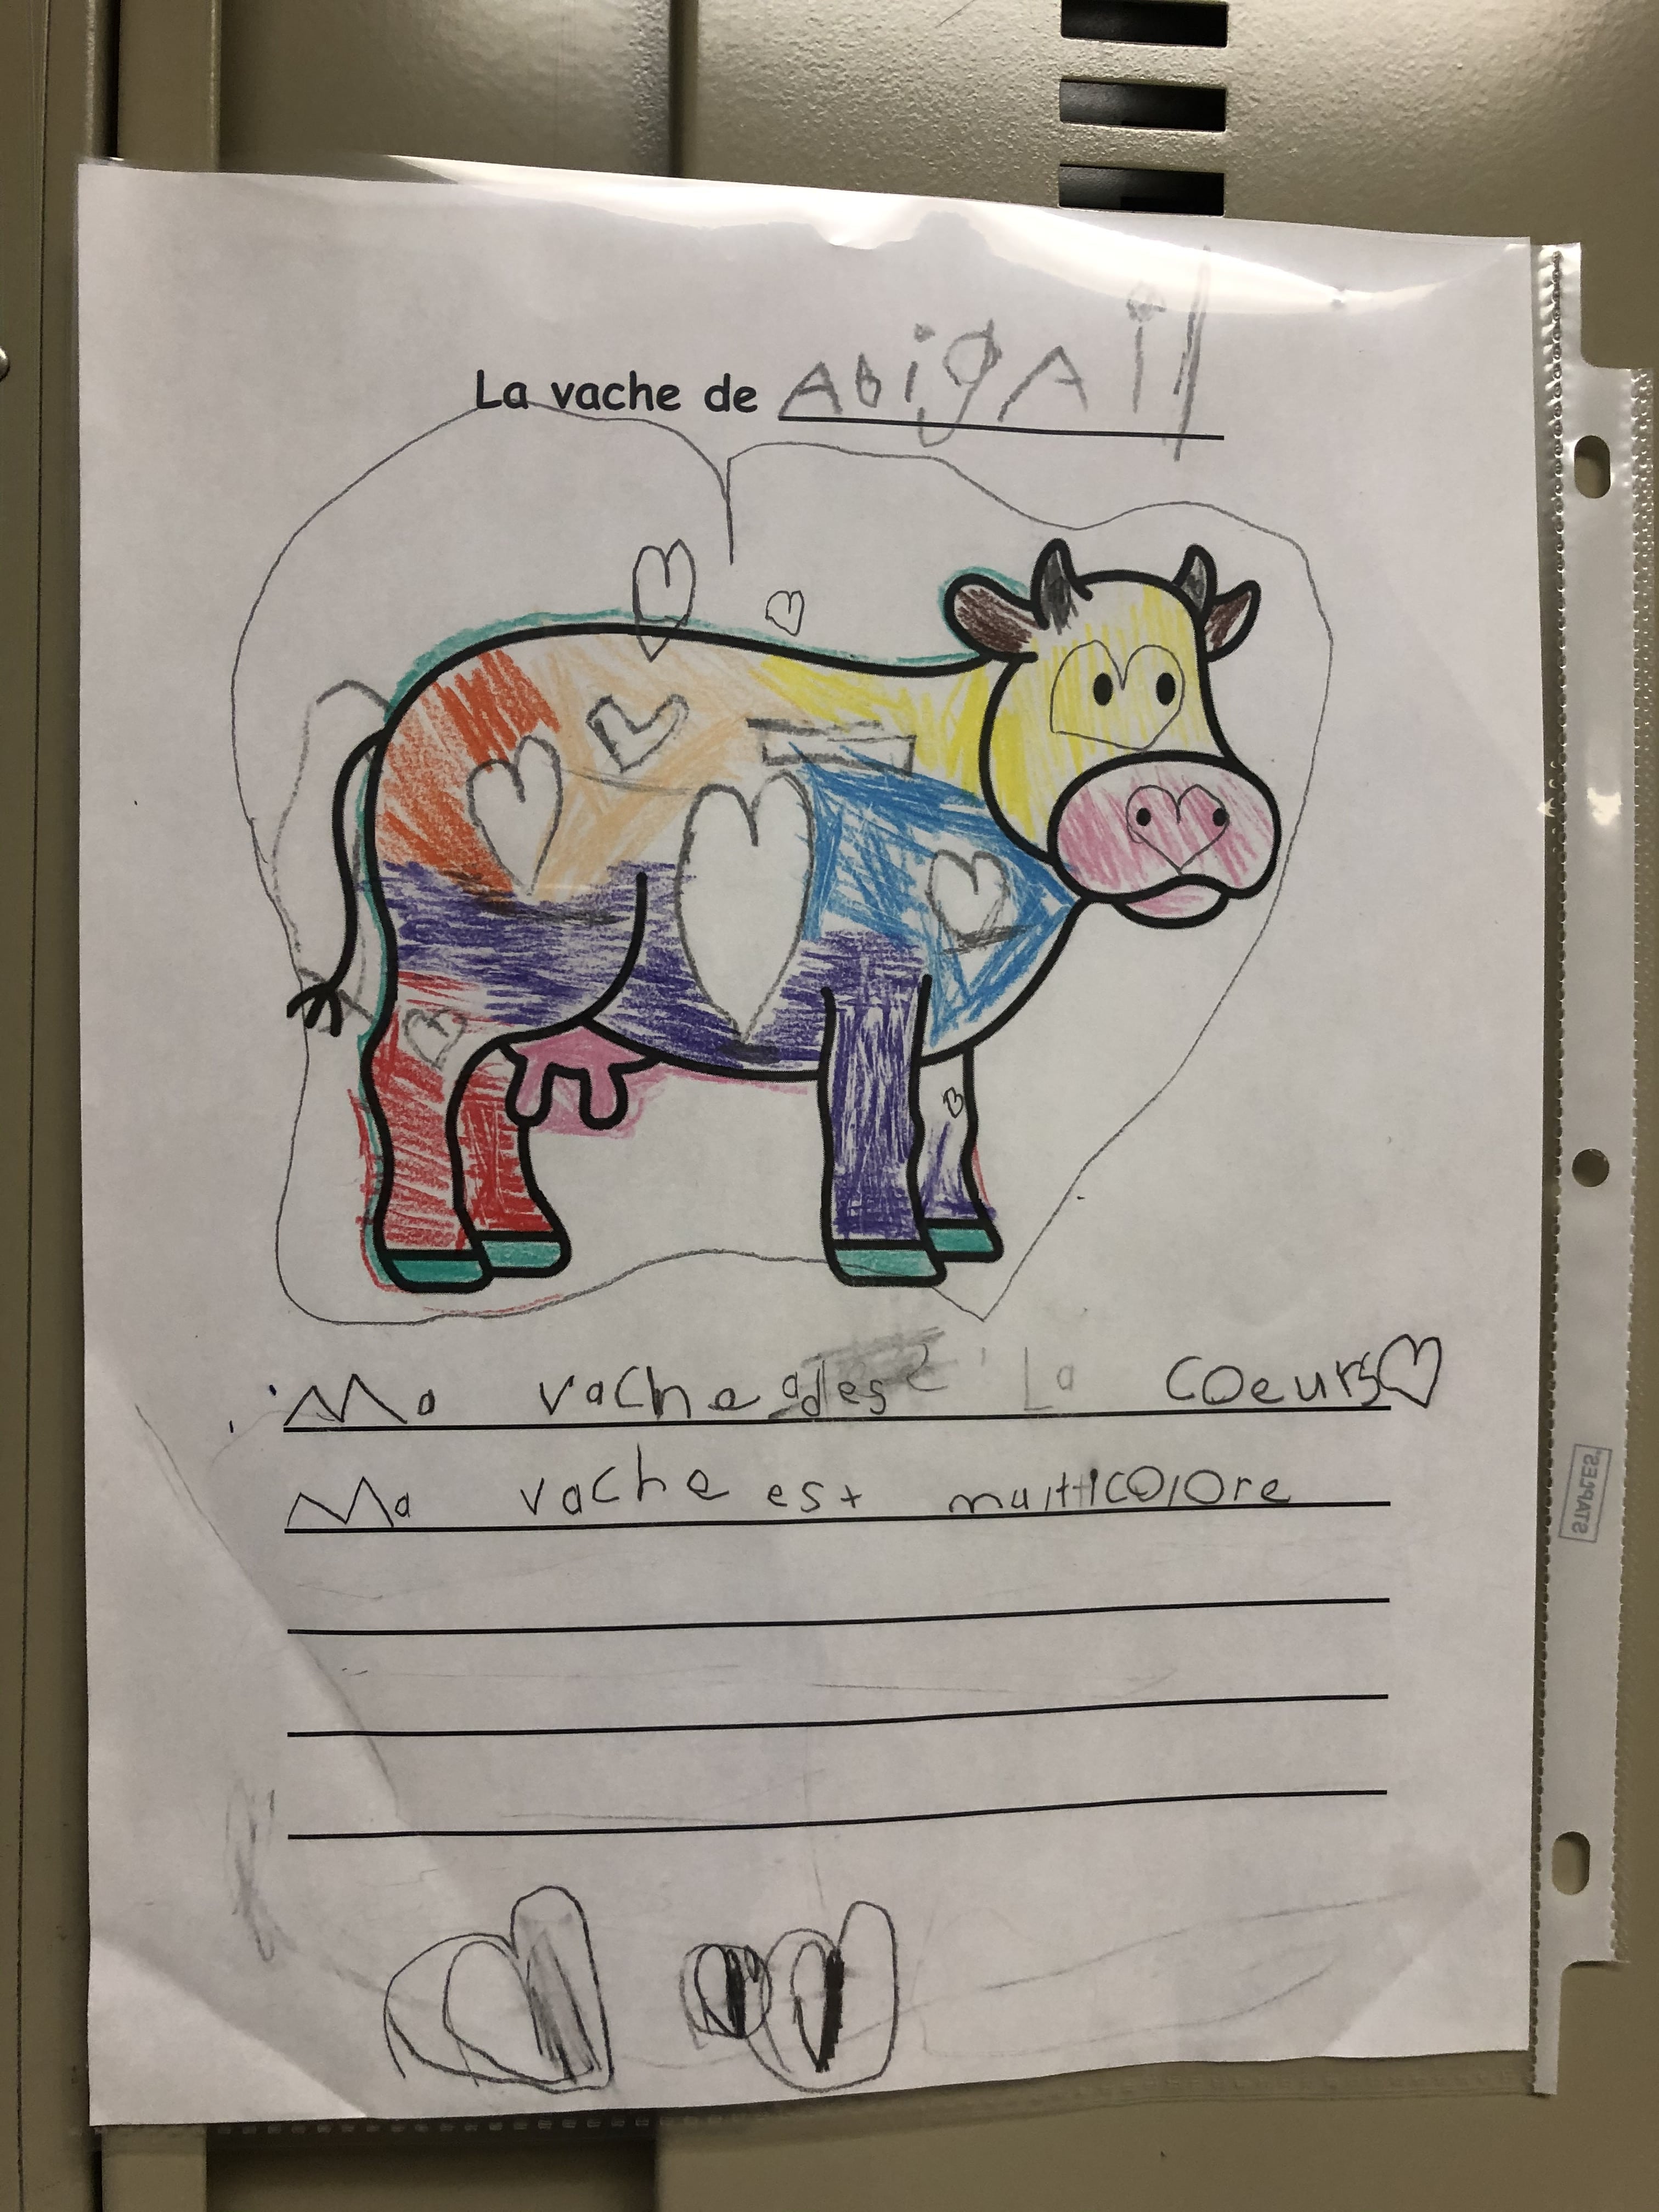 La vache de Abigail
Ma vache a des La coeurs
Ma vache est multicolore
STAPLES